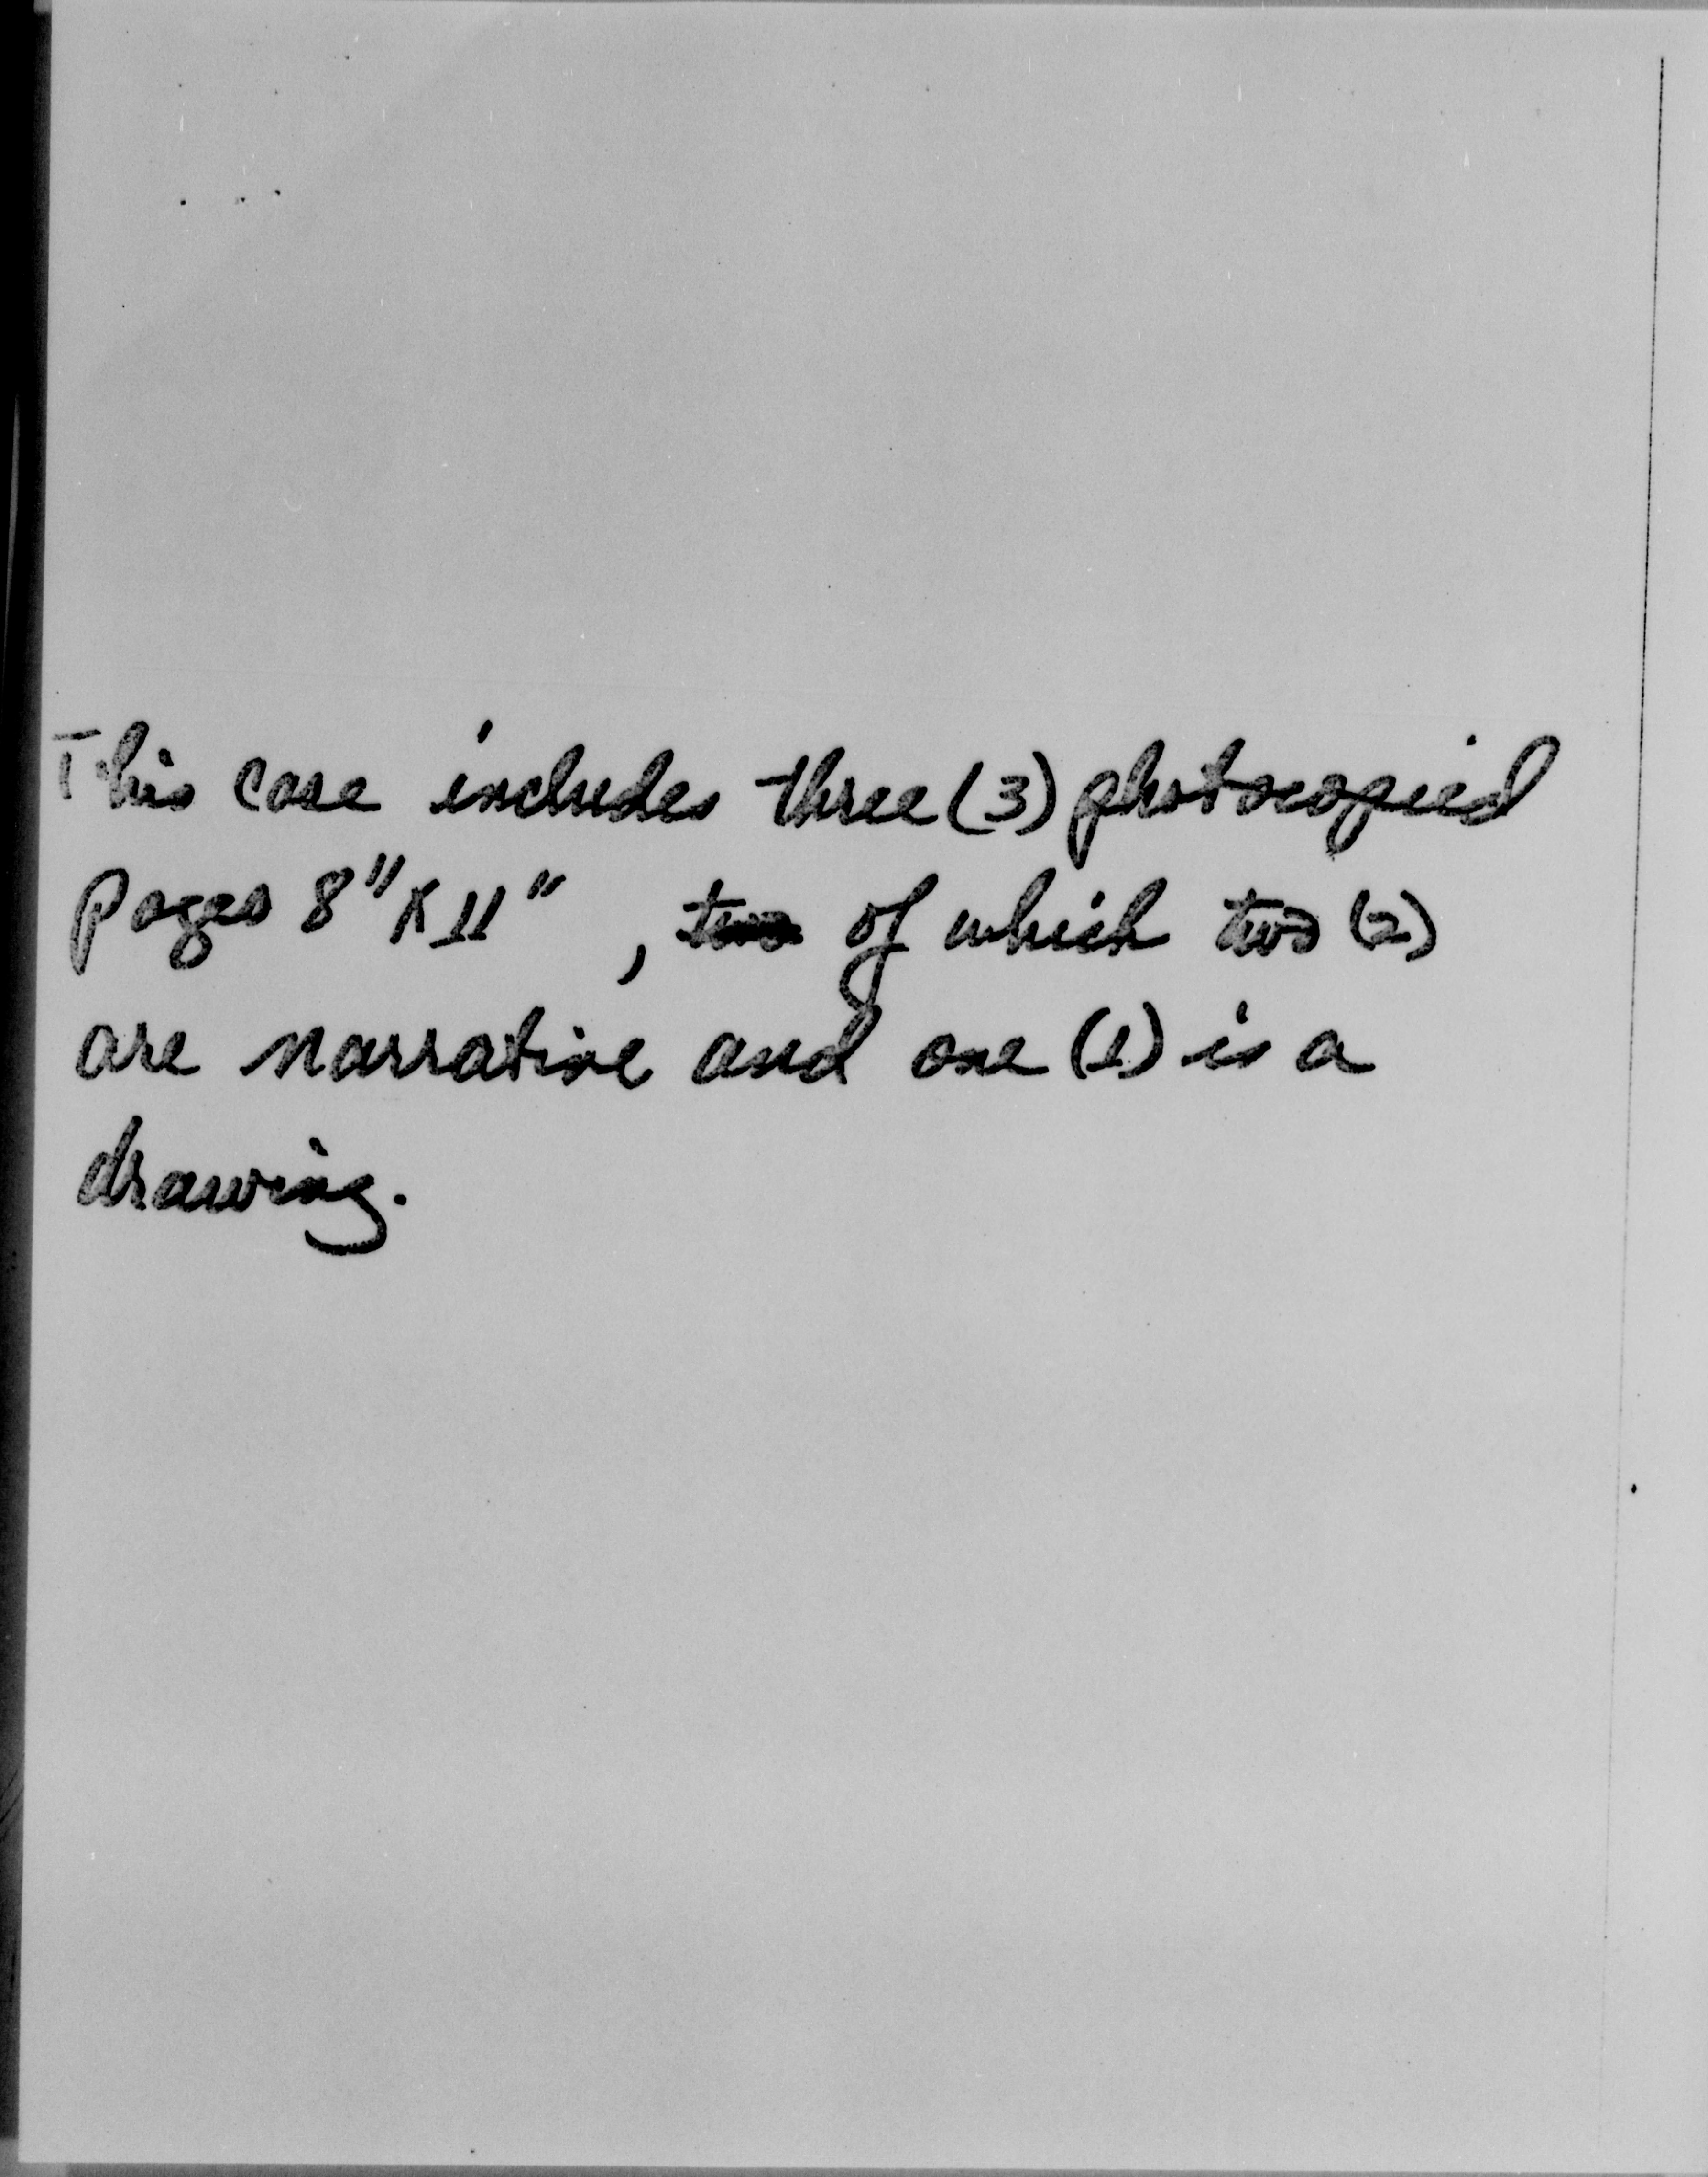 This case includes three (3) photocopied
pages 8" X 11" , two of which two (2)
are narrative and one (1) is a
drawing.